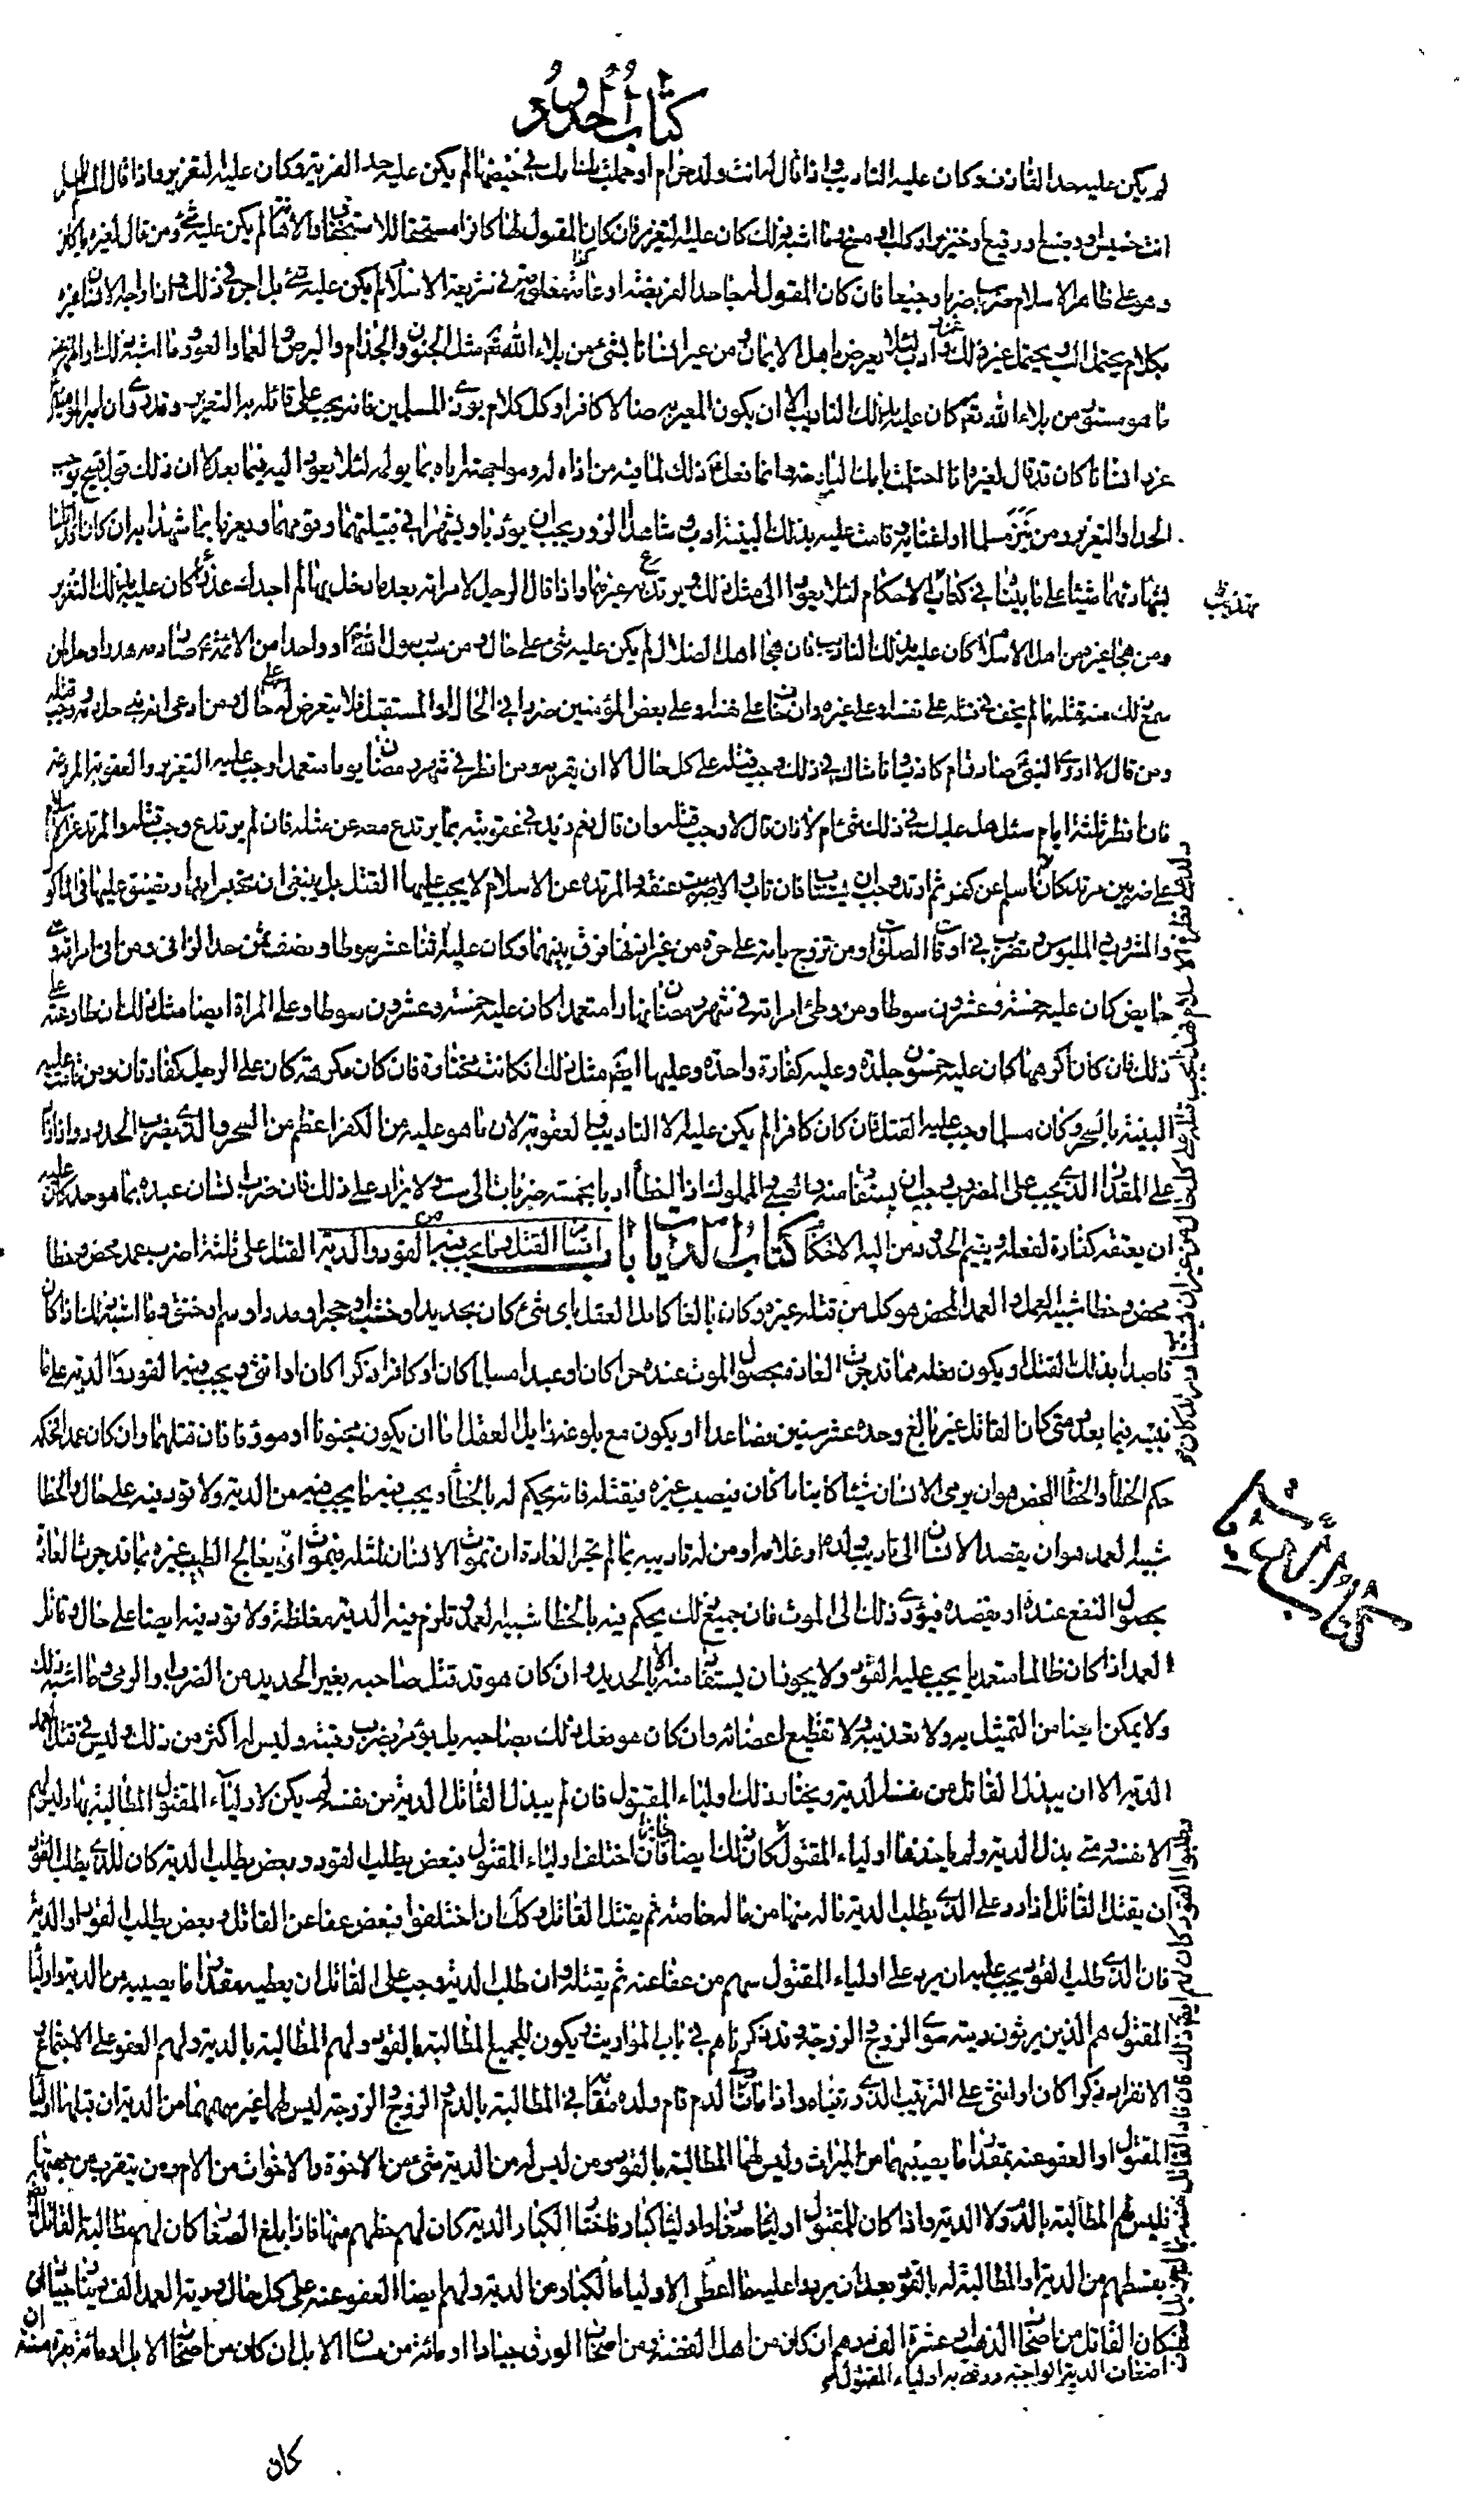 كتاب الحدود
لم يكن عليه حد القاذف وكان عليه التاديب واذا قال له انت ولد حرام او حملت بك امك في حيضها لم يكن عليه حد الفرية وكان عليه التعزير واذا قال المسلم
انت خسيس او وضيع او رقيع او خنزير او كلب او مسخ وما اشبه ذلك كان عليه التعزير فان كان المقول له كافرا مستحقا للاستخفاف والاهانة لم يكن عليه شئ ومن قال لغيره يا كافر
وهو على ظاهر الاسلام ضرب ضربا وجيعا فان كان المقول له جاحدا لفريضة او عامة في شريعة الاسلام لم يكن عليه شئ بل اجر في ذلك وان واجه الانسان غيره
بكلام يحتمل السب ويحتمل غيره عزر لذلك وادب لئلا يعرض باهل الايمان ومن عير انسانا بشئ من بلاء الله تعم مثل الجنون والجذام والبرص والعما والعور وما اشبه ذلك او
ما هو مستور من بلاء الله تعم كان عليه بذلك التاديب الا ان يكون المعير به ضالا كافرا وكل كلام يؤذي المسلمين فانه يجب على قائله به التعزير وقد روي ان امير المؤمنين
عزر انسانا كان قد قال لغيره انا احتلمت بامك البارحة وانما فعل ع ذلك لما فيه من اذاه له ومواجهته اياه بما يولمه لئلا يعود اليه فيما بعد لا ان ذلك قول قبيح يوجب
الحد او التعزير ومن نبز مسلما او اغتابه وقامت عليه بذلك البينة ادب و شاهدا الزور يجب ان يؤدبا ويشهرا في قبيلتهما وقومهما ويغرما ما شهدا به ان كانا اتلفا
بشهادتهما شيئا على ما بيناه في كتاب الاحكام لئلا يعودا الى مثل ذلك ويرتدع به غيرهما واذا قال الرجل لامراته بعد ما دخل بها لم اجدك عذراء كان عليه بذلك التعزير
تهذيب
ومن هجا غيره من اهل الاسلام كان عليه بذلك التاديب فان هجا اهل الضلال لم يكن عليه شئ على حال ومن سب رسول الله ص او واحدا من الائمة ع صار دمه هدرا وحل لمن
سمع ذلك منه قتله ما لم يخف في قتله على نفسه او على غيره وان خاف على نفسه او على بعض المؤمنين ضررا في الحال او المستقبل فلا يتعرض له على حال ومن ادعى انه نبي حل دمه ووجب قتله
ومن قال لا ادري النبي صادق ام كاذب وانا شاك في ذلك وجب قتله على كل حال الا ان يقر به ومن افطر في شهر رمضان يوما متعمدا وجب عليه التعزير والعقوبة المردعة
فان افطر ثلثة ايام سئل هل عليك في ذلك شئ ام لا فان قال لا وجب قتله وان قال نعم زيد في عقوبته بما يرتدع معه عن مثله فان لم يرتدع وجب قتله والمرتد عن الاسلام
على ضربين مرتد كان اسلم عن كفر ثم ارتد وجب ان يستتاب فان تاب والا ضربت عنقه والمرتدة عن الاسلام لا يجب عليها القتل بل ينبغي ان تحبس ابدا ويضيق عليها في الماكول
والمشروب والملبوس وتضرب في اوقات الصلوة ومن تزوج بامة على حرة من غير اذنها فرق بينهما وكان عليه اثنا عشر سوطا ونصف ثمن حد الزاني ومن اتى امراته وهي
حايض كان عليه خمسة وعشرون سوطا ومن وطئ امراته في شهر رمضان نهارا متعمدا كان عليه خمسة وعشرون سوطا وعلى المراة ايضا مثل ذلك ان طاوعته على
ذلك فان كان اكرهها كان عليه خمسون جلدة وعليه كفارة واحدة وعليها ايضم مثل ذلك ان كانت مختارة فان كان مكرهة كان على الرجل كفارتان ومن قامت عليه
البينة بالسحر وكان مسلما وجب عليه القتل فان كان كافرا لم يكن عليه الا التاديب والعقوبة لان ما هو عليه من الكفر اعظم من السحر والذي يضرب الحدود اذا زاد
على المقدار الذي يجب على المضروب وجب ان يستقاد منه والصبي والمملوك اذا اخطأ ادبا بخمسة ضربات الى ست ولا يزاد على ذلك فان ضرب انسان عبده بما هو حد كان عليه
ان يعتقه كفارة لفعله ويقيم الحدود من اليه الاحكام كتاب الديات باب اقسام القتل وما يجب فيه من القود والدية القتل على ثلثة اضرب عمد محض وخطا
محض وخطا شبيه العمد والعمد المحض هو كل من قتل غيره وكان بالغا كامل العقل باي شئ كان بحديد او خشب او حجر او مدر او سم او خنق وما اشبه ذلك اذا كان
قاصدا بذلك القتل او يكون فعله مما قد جرت العادة بحصول الموت عنده حرا كان او عبدا مسلما كان او كافرا ذكرا كان او انثى ويجب فيه القود او الدية على ما
نبينه فيما بعد ومتى كان القاتل غير بالغ وحده عشر سنين فصاعدا او يكون مع بلوغه زايل العقل اما ان يكون مجنونا او مؤوفا فان قتلهما وان كان عمدا فحكمه
حكم الخطأ والخطأ المحض هو ان يرمي الانسان شيئا كاينا ما كان فيصيب غيره فيقتله فانه يحكم له بالخطأ ويجب فيه ما يجب فيه من الدية ولا قود فيه على حال والخطا
شبيه العمد هو ان يقصد الانسان الى تاديب ولده او غلامه او من له تاديبه بما لم تجر العادة ان يموت الانسان بمثله فيموت او يعالج الطبيب غيره بما قد جرت العادة
بحصول النفع عنده او يفصده فيؤدي ذلك الى الموت فان جميع ذلك يحكم فيه بالخطا شبيه العمد وتلزم فيه الدية مغلظة ولا قود فيه ايضا على حال وقاتل
كتاب الديات
العمد اذا كان ظالما متعديا يجب عليه القود ولا يجوز ان يستقاد منه الا بالحديد وان كان هو قد قتل صاحبه بغير الحديد من الضرب او الرمي وما اشبه ذلك
ولا يمكن ايضا من التمثيل به ولا تعذيبه ولا تقطيع اعضائه وان كان هو فعل ذلك بصاحبه بل يؤمر بضرب رقبته وليس له اكثر من ذلك وليس في قتل العمد
الدية الا ان يبذل القاتل من نفسه الدية ويختار ذلك اولياء المقتول فان لم يبذل القاتل الدية من نفسه لم يكن لاولياء المقتول المطالبة بها وليس لهم
الا نفسه ومتى بذل الدية ولم ياخذها اولياء المقتول وطلبوا القود كان لهم ايضا ذلك فان فادا القاتل نفسه بمال جزيل اضعاف الدية الواجبة ورضى به اولياء المقتول كان ذلك ايضا جائزا فان اختلف اولياء المقتول فبعض يطلب القود وبعض يطلب الدية كان للذي يطلب القود
ان يقتل القاتل اذا رد على الذي يطلب الدية ماله منها من ماله خاصة ثم يقتل القاتل وكك ان اختلفوا فبعض عفا عن القاتل وبعض يطلب القود او الدية
فان الذي طلب القود يجب عليه ان يرد على اولياء المقتول سهم من عفا عنه ثم يقتله وان طلب الدية وجب على القاتل ان يعطيه مقدار ما يصيبه من الدية واولياء
المقتول هم الذين يرثون ديته سوى الزوج والزوجة وقد ذكرناهم في باب المواريث ويكون للجميع المطالبة بالقود ولهم المطالبة بالدية ولهم العفو على الاجتماع
الانفراد ذكرا كان او انثى على الترتيب الذي رتبناه واذا مات ولي الدم قام ولده مقامه في المطالبة بالدم والزوج والزوجة ليس لهما غير سهمهما من الدية ان قبلها اولياء
المقتول او العفو عنه بمقدار ما يصيبهما من الميراث وليس لهما المطالبة بالقود ومن ليس له من الدية شئ من الاخوة والاخوات من الام ومن يتقرب من جهتها
فليس لهم المطالبة بالدم ولا الدية واذا كان للمقتول اولياء صغار واولياء كبار فاختار الكبار الدية كان لهم حظهم منها فاذا بلغ الصغار كان لهم مطالبة القاتل
بقسطهم من الدية او المطالبة له بالقود بعد ان يردوا عليه ما اعطى الاولياء الكبار من الدية ولهم ايضا العفو عنه على كل حال ودية العمد الف دينار جيادا
ان كان القاتل من اصحاب الذهب او عشرة الف درهم ان كان من اهل الفضة ومن اصحاب الورق جيادا او مائة من مسان الابل ان كان من اصحاب الابل او مائتا بقرة مسنة ان
كان